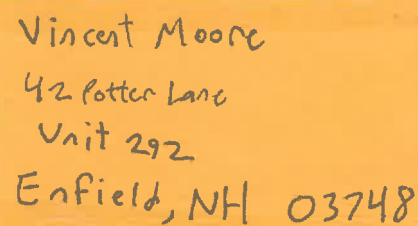 Vincent Moore
42 Potter Lane
Unit 292
Enfield, NH 03748